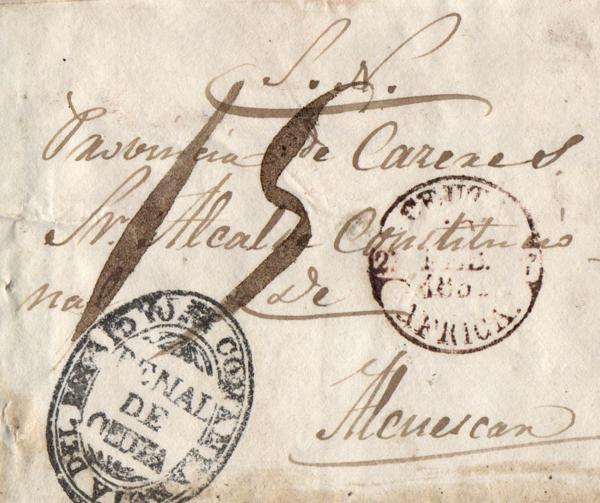 S. N.
Provincia de Cazeres.
Sr. Alcalde Constitucio
nal de
Alcuescar
15
CEUTA
FEB.
185
AFRICA.
COMANDANCIA DEL
PENAL
DE
CEUTA